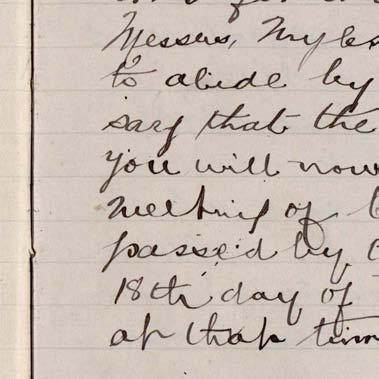 Messrs, Myles
to abide by
say that the
you will now
meeting of
passed by
18th day of
at that tim